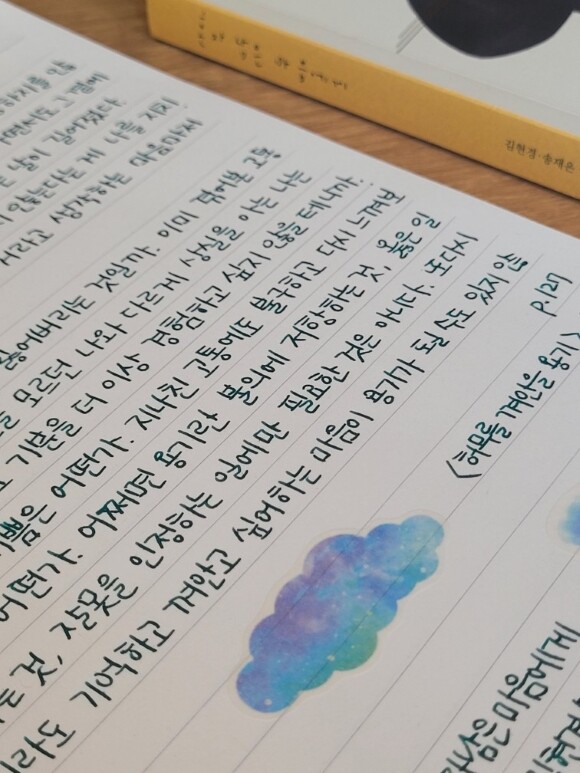 면서도 그 곁에
날이 길어졌다.
않는다는 게 나를 지치
거라고 생각하는 마음마저
잃어버리는 것일까. 이미 겪어본 고통
모르던 나와 다르게 상실을 아는 나는
기쁨을 더 이상 경험하고 싶지 않을 테니까.
기쁨은 어떤가. 지나친 고통에도 불구하고 다시 느껴보
어떤가. 어쩌면 용기란 불의에 저항하는 것, 옳은 일
는 것, 잘못을 인정하는 일에만 필요한 것은 아니다. 또다시
라도 기억하고 껴안고 싶어하는 마음이 용기가 될 수도 있지 않
<허무를 껴안을 용기>
닮은 마음에게
김현경·송재은